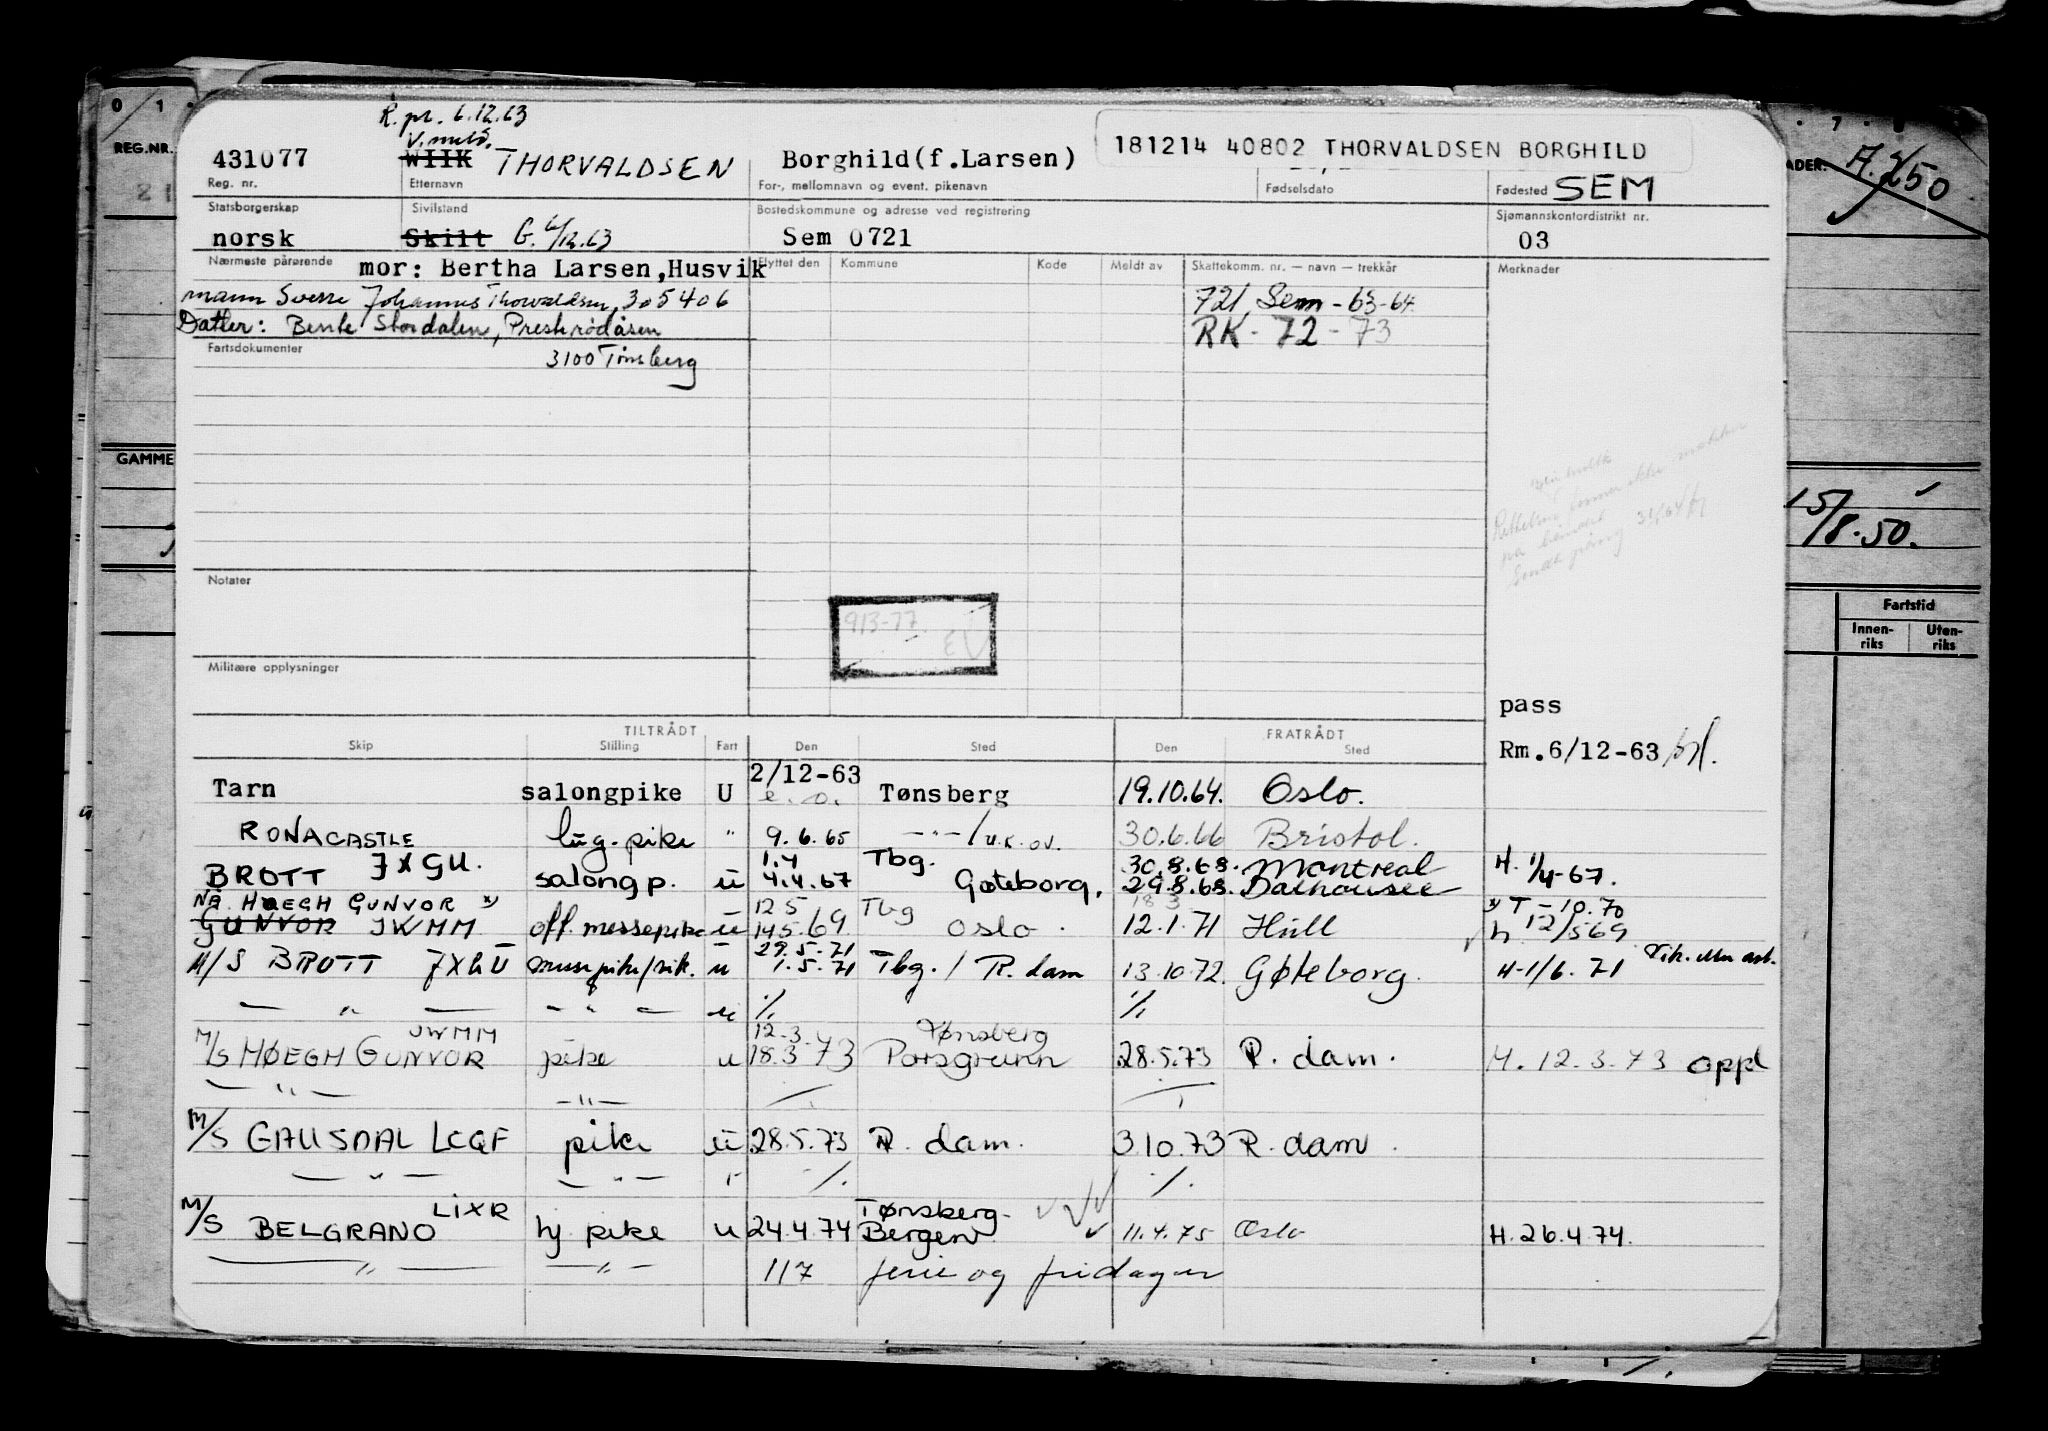 R. pl. 6.12.63
V. meld.
431077 WIIK THORVALDSEN Borghild(f.Larsen) 181214 40802 THORVALDSEN BORGHILD
Reg. nr. Etternavn For-, mellomnavn og event. pikenavn Fødselsdato Fødested SEM
Statsborgerskap Sivilstand Bostedskommune og adresse ved registrering Sjømannskontordistrikt nr.
norsk Skilt G. 6/12.63 Sem 0721 03
Nærmeste pårørende mor: Bertha Larsen,Husvik Flyttet den Kommune Kode Meldt av Skattekomm. nr. — navn — trekkår Merknader
mann Sverre Johannes Thorvaldsen, 305406 721, Sem - 63-64
Datter: Bente Stordalen, Presterødåsen RK - 72 - 73
Fartsdokumenter 3100 Tønsberg
Notater
913-77.
Militære opplysninger
pass
TILTRÅDT FRATRÅDT
Skip Stilling Fart Den Sted Den Sted Rm.6/12-63
2/12-63
Tarn salongpike U e.o. Tønsberg 19.10.64. Oslo.
RONACASTLE lug.pike " 9.6.65 —"—/u.k.ov. 30.6.66 Bristol.
1.4 Tbg. 30.8.68. Montreal
BROTT JXGU. salongp. ü 4.4.67 Gøteborg. 29.8.68. Dalhousie H. 1/4-67.
NÅ HØEGH GUNVOR x) 12.5 Tbg 18.3 x) T - 10.70
GUNVOR JWMM off.messepike ü 14.5.69 Oslo. 12.1.71 Hull h 12/5 69
29.5.71
M/S BROTT JXGU messepike/vik. u 1.5.71 Tbg. / R.dam 13.10.72. Gøteborg. H-1/6.71
— " — — " — u % %
JWMM 12.3. Tønsberg
M/S HØEGH GUNVOR pike u 18.3 73 Porsgrunn 28.5.73 R. dam. H. 12.3.73 oppl
— " — —"—
M/S GAUSDAL LCQF pike ü 28.5.73 R. dam. 3.10.73 R. dam.
— " — — " — " % %
LIXR Tønsberg-
M/S BELGRANO hj pike u 24.4.74 Bergen 11.4.75 Oslo H. 26.4.74.
— " — — " — 117 ferie og fridager
0 1
REG.NR.
GAMME
7
ADER: A. 2/50
15/8.50.
Fartstid
Innen-riks Uten-riks